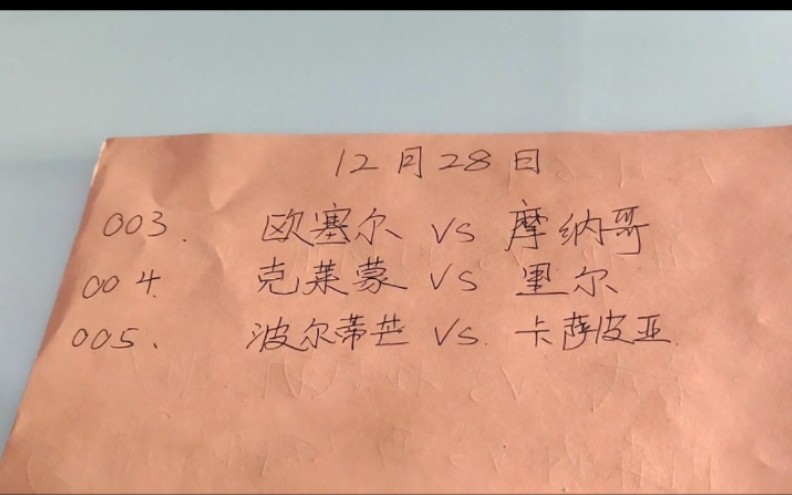 12月28日
003. 欧塞尔 VS 摩纳哥
004. 克莱蒙 VS 里尔
005. 波尔蒂芒 VS. 卡萨皮亚